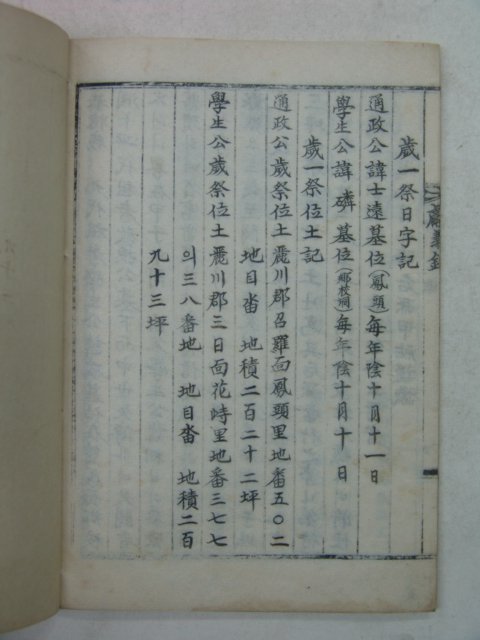 歲一祭日字記
通政公諱士遠墓位(鳳頭)每年陰十月十一日
學生公諱璘墓位(鄕校洞)每年陰十月十日
歲一祭位土記
通政公歲祭位土麗川郡召羅面鳳頭里地番五〇二
地目畓 地積二百二十二坪
學生公歲祭位土麗川郡三日面花峙里地番三七七
의三八番地 地目畓 地積二百
九十三坪